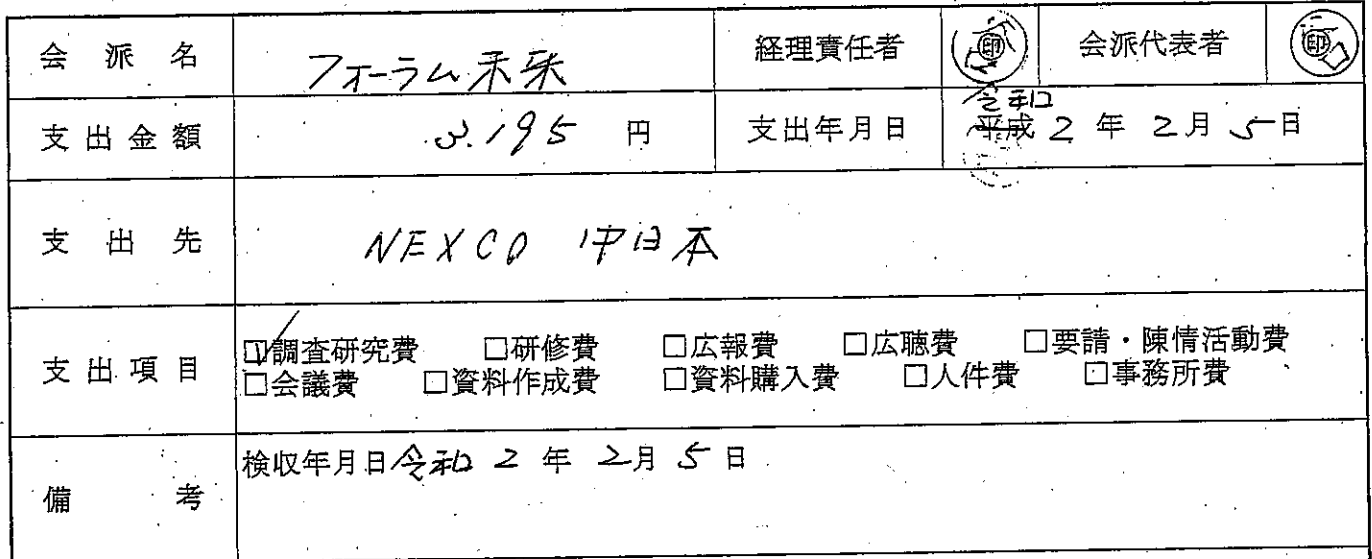 会派名 フォーラム未来 経理責任者 印 会派代表者 印
令和
支出金額 3.195 円 支出年月日 平成 2 年 2月 5日
支出先 NEXCO 中日本
支出項目 ☑調査研究費 □研修費 □広報費 □広聴費 □要請・陳情活動費
□会議費 □資料作成費 □資料購入費 □人件費 □事務所費
備考 検収年月日令和 2 年 2月 5 日